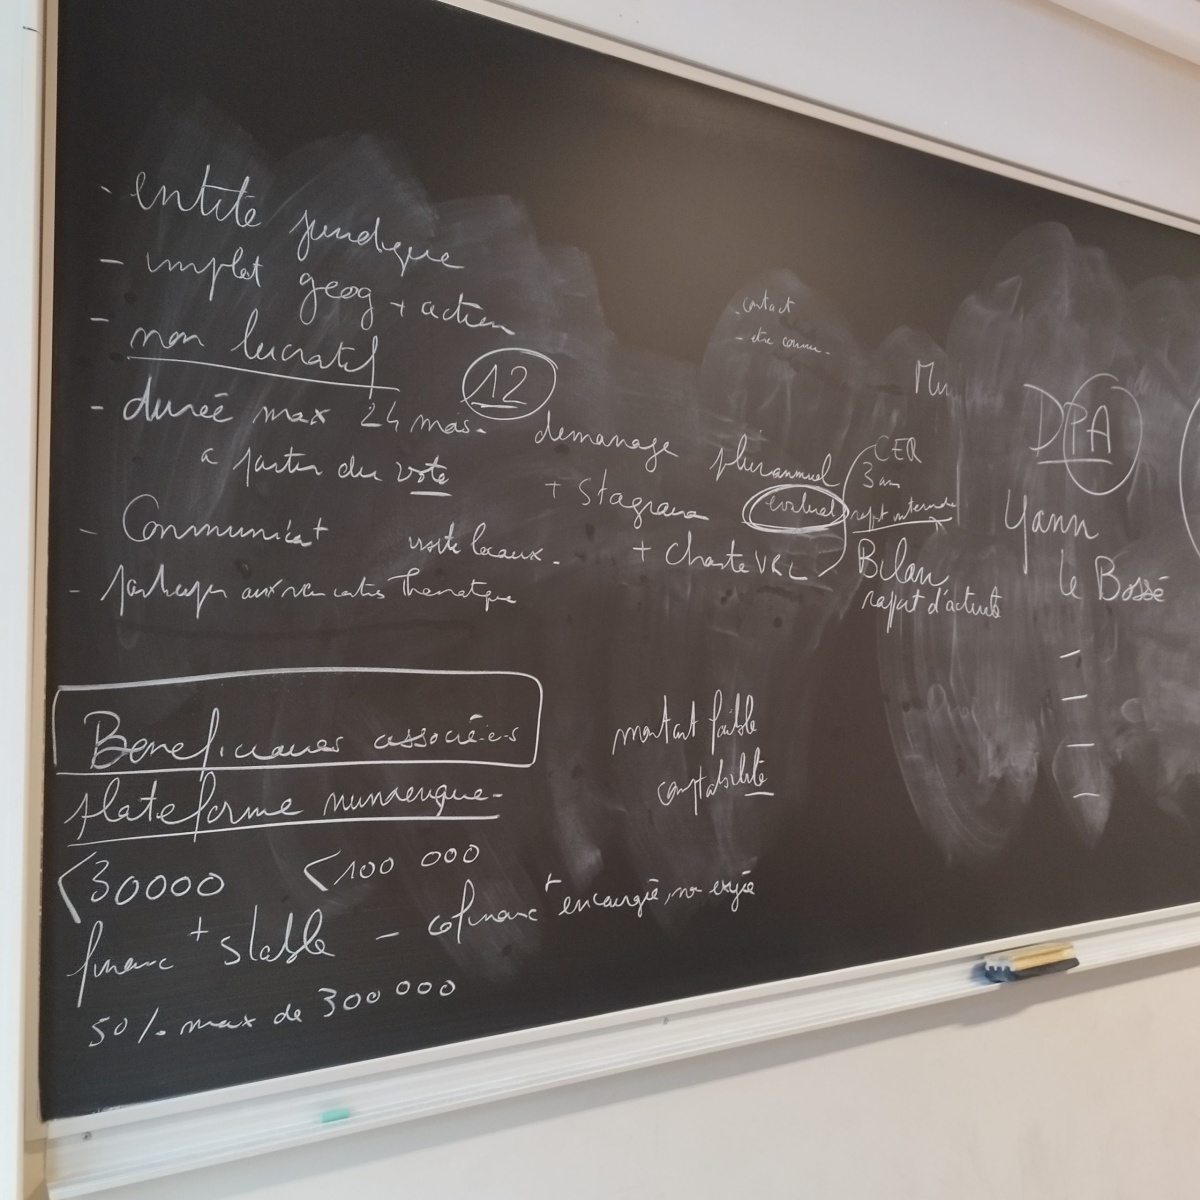 - entité juridique
- implat geog + action
- non lucratif
12
- durée max 24 mois.
a partir du vote
- Communicat° visite locaux.
- participer aux rencontres thematique
. contact
- etre connu.
demarrage pluriannuel
+ Stagiaire
+ charte VRL
CER
3 ans
Bilan
rapport d'activité
Mu
DPA
Yann
le Bossé
Beneficiaires associé-e-s
plateforme numerique-
<30000 <100 000
financ + stable - cofinanc+ encouragé, non exigée
50% max de 300 000
montant faible
comptabilité